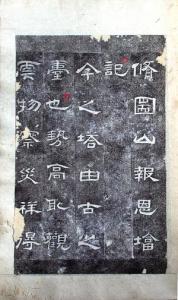 脩圌山報恩墖
記
今之塔由古之
臺也勢高耴觀
雲物察災祥得